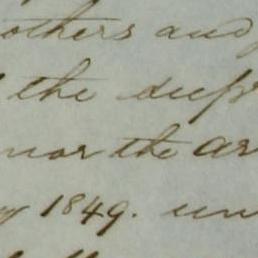 others and
the deep
nor the ar
y 1849. un